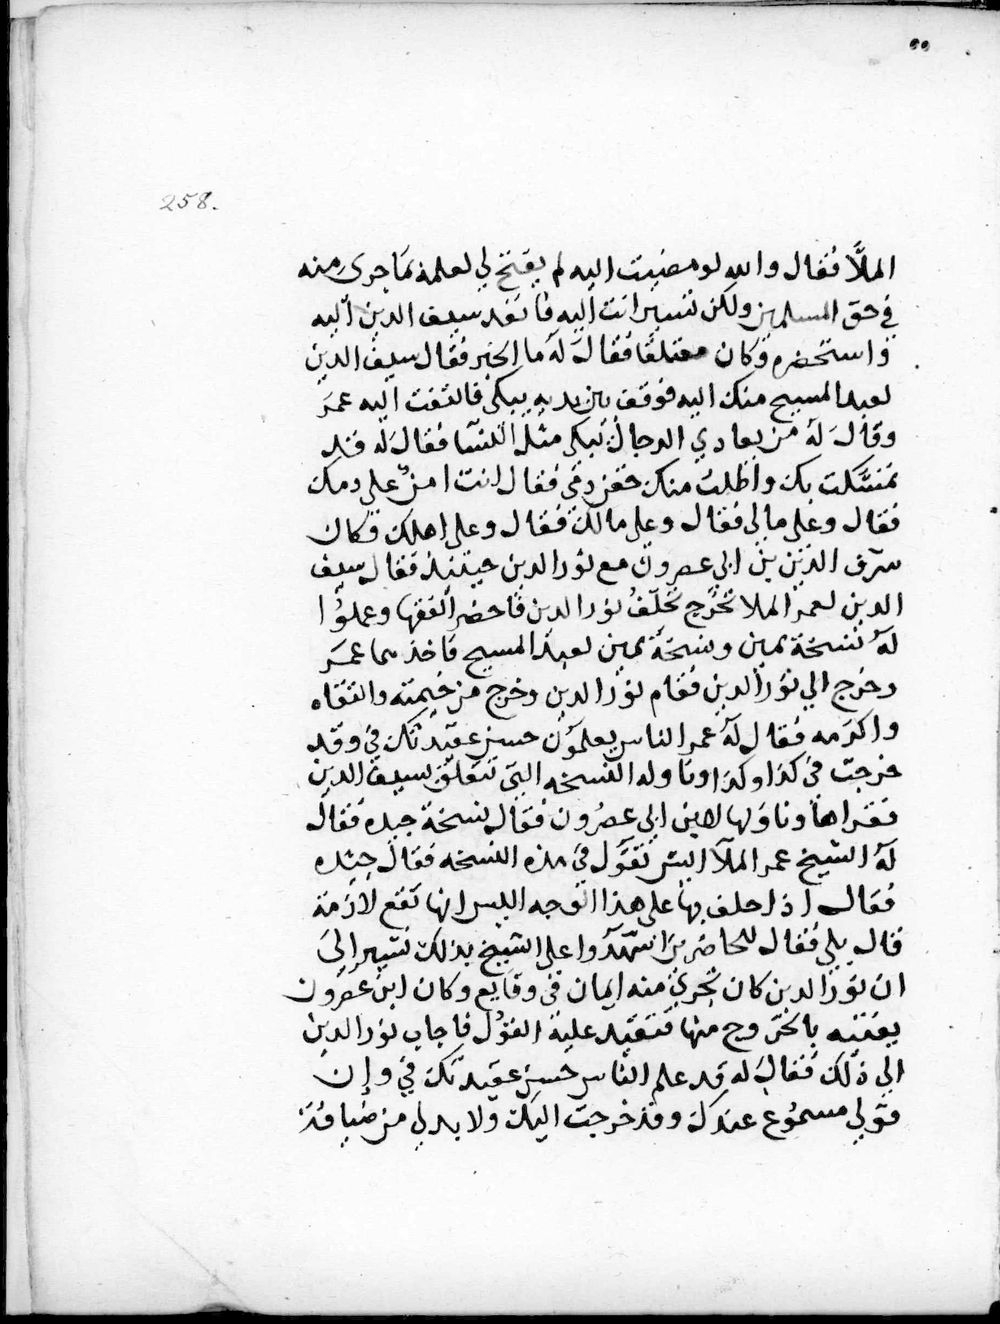 258.
الملَّا فقال والله لو مضيت اليه لم يفتح لي لعلمه بما جرى منه
في حق المسلمين ولكن تسير انت اليه فانفد سيف الدين اليه
واستحضره وكان معتلقًا فقال له ما الخبر فقال سيف الدين
لعبد المسيح منك اليه فوقف بين يديه يبكي فالتفت اليه عمر
وقال له من يعادي الرجال يبكي مثل النسا فقال له قد
تمسكت بك واطلب منك حقن دمي فقال انت امن على دمك
فقال وعلى مالي فقال وعلى مالك فقال وعلى اهلك فكان
شرف الدين بن ابي عصرون مع نور الدين حينئذ فقال سيف
الدين لعمر الملا تخرج تحلف نور الدين فاحضر الفقها وعملوا
له نسخة يمين ونسخة يمين لعبد المسيح فاخذهما عمر
وخرج الي نور الدين فقام نور الدين وخرج من خيمته والتقاه
واكرمه فقال له عمر الناس يعلمون حسن عقيدتك في وقد
خرجت في كذا وكذا وناوله النسخه التي تتعلق بسيف الدين
فقراها وناولها لابن ابي عصرون فقال نسخة جيده فقال
له الشيخ عمر الملا ايش تقول في هذه النسخه فقال جيده
فقال اذا حلف بها على هذا الوجه اليس انها تقع لازمة
قال بلي فقال للحاضرين اشهدوا على الشيخ بذلك تسير الي
ان نور الدين كان تجري منه ايمان في وقايع وكان ابن عصرون
يفتيه بالخروج منها فتقيد عليه القول فاجاب نور الدين
الي ذلك فقال له قد علم الناس حسن عقيدتك في وإن
قولي مسموع عندك وقد خرجت اليك ولا بد لي من ضيافة